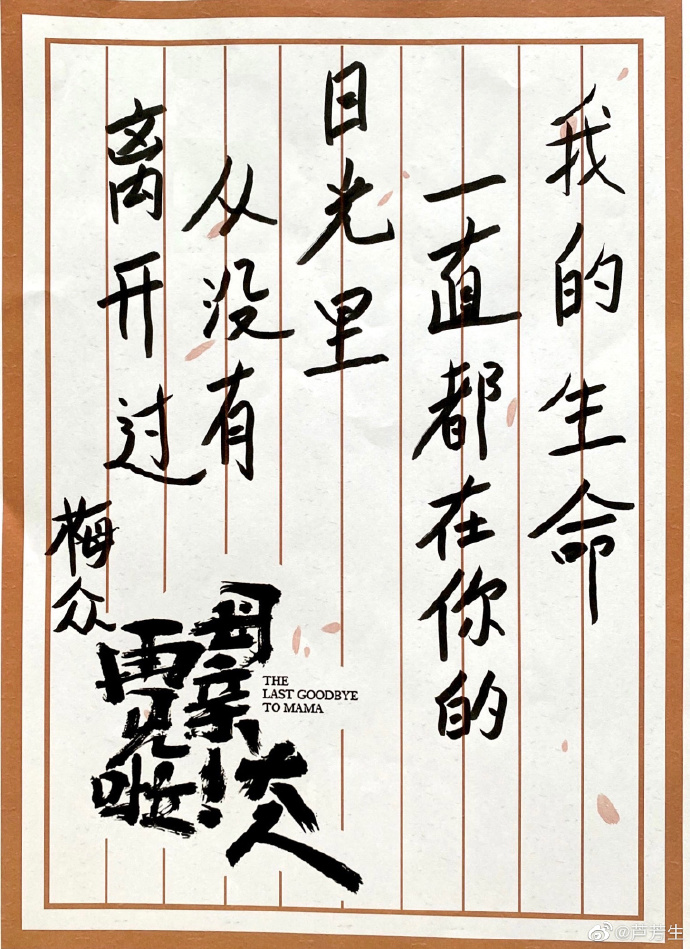 我的生命
一直都在你的
目光里
从没有
离开过
梅众
再见啦!
母亲大人
THE
LAST GOODBYE
TO MAMA
@芦芳生